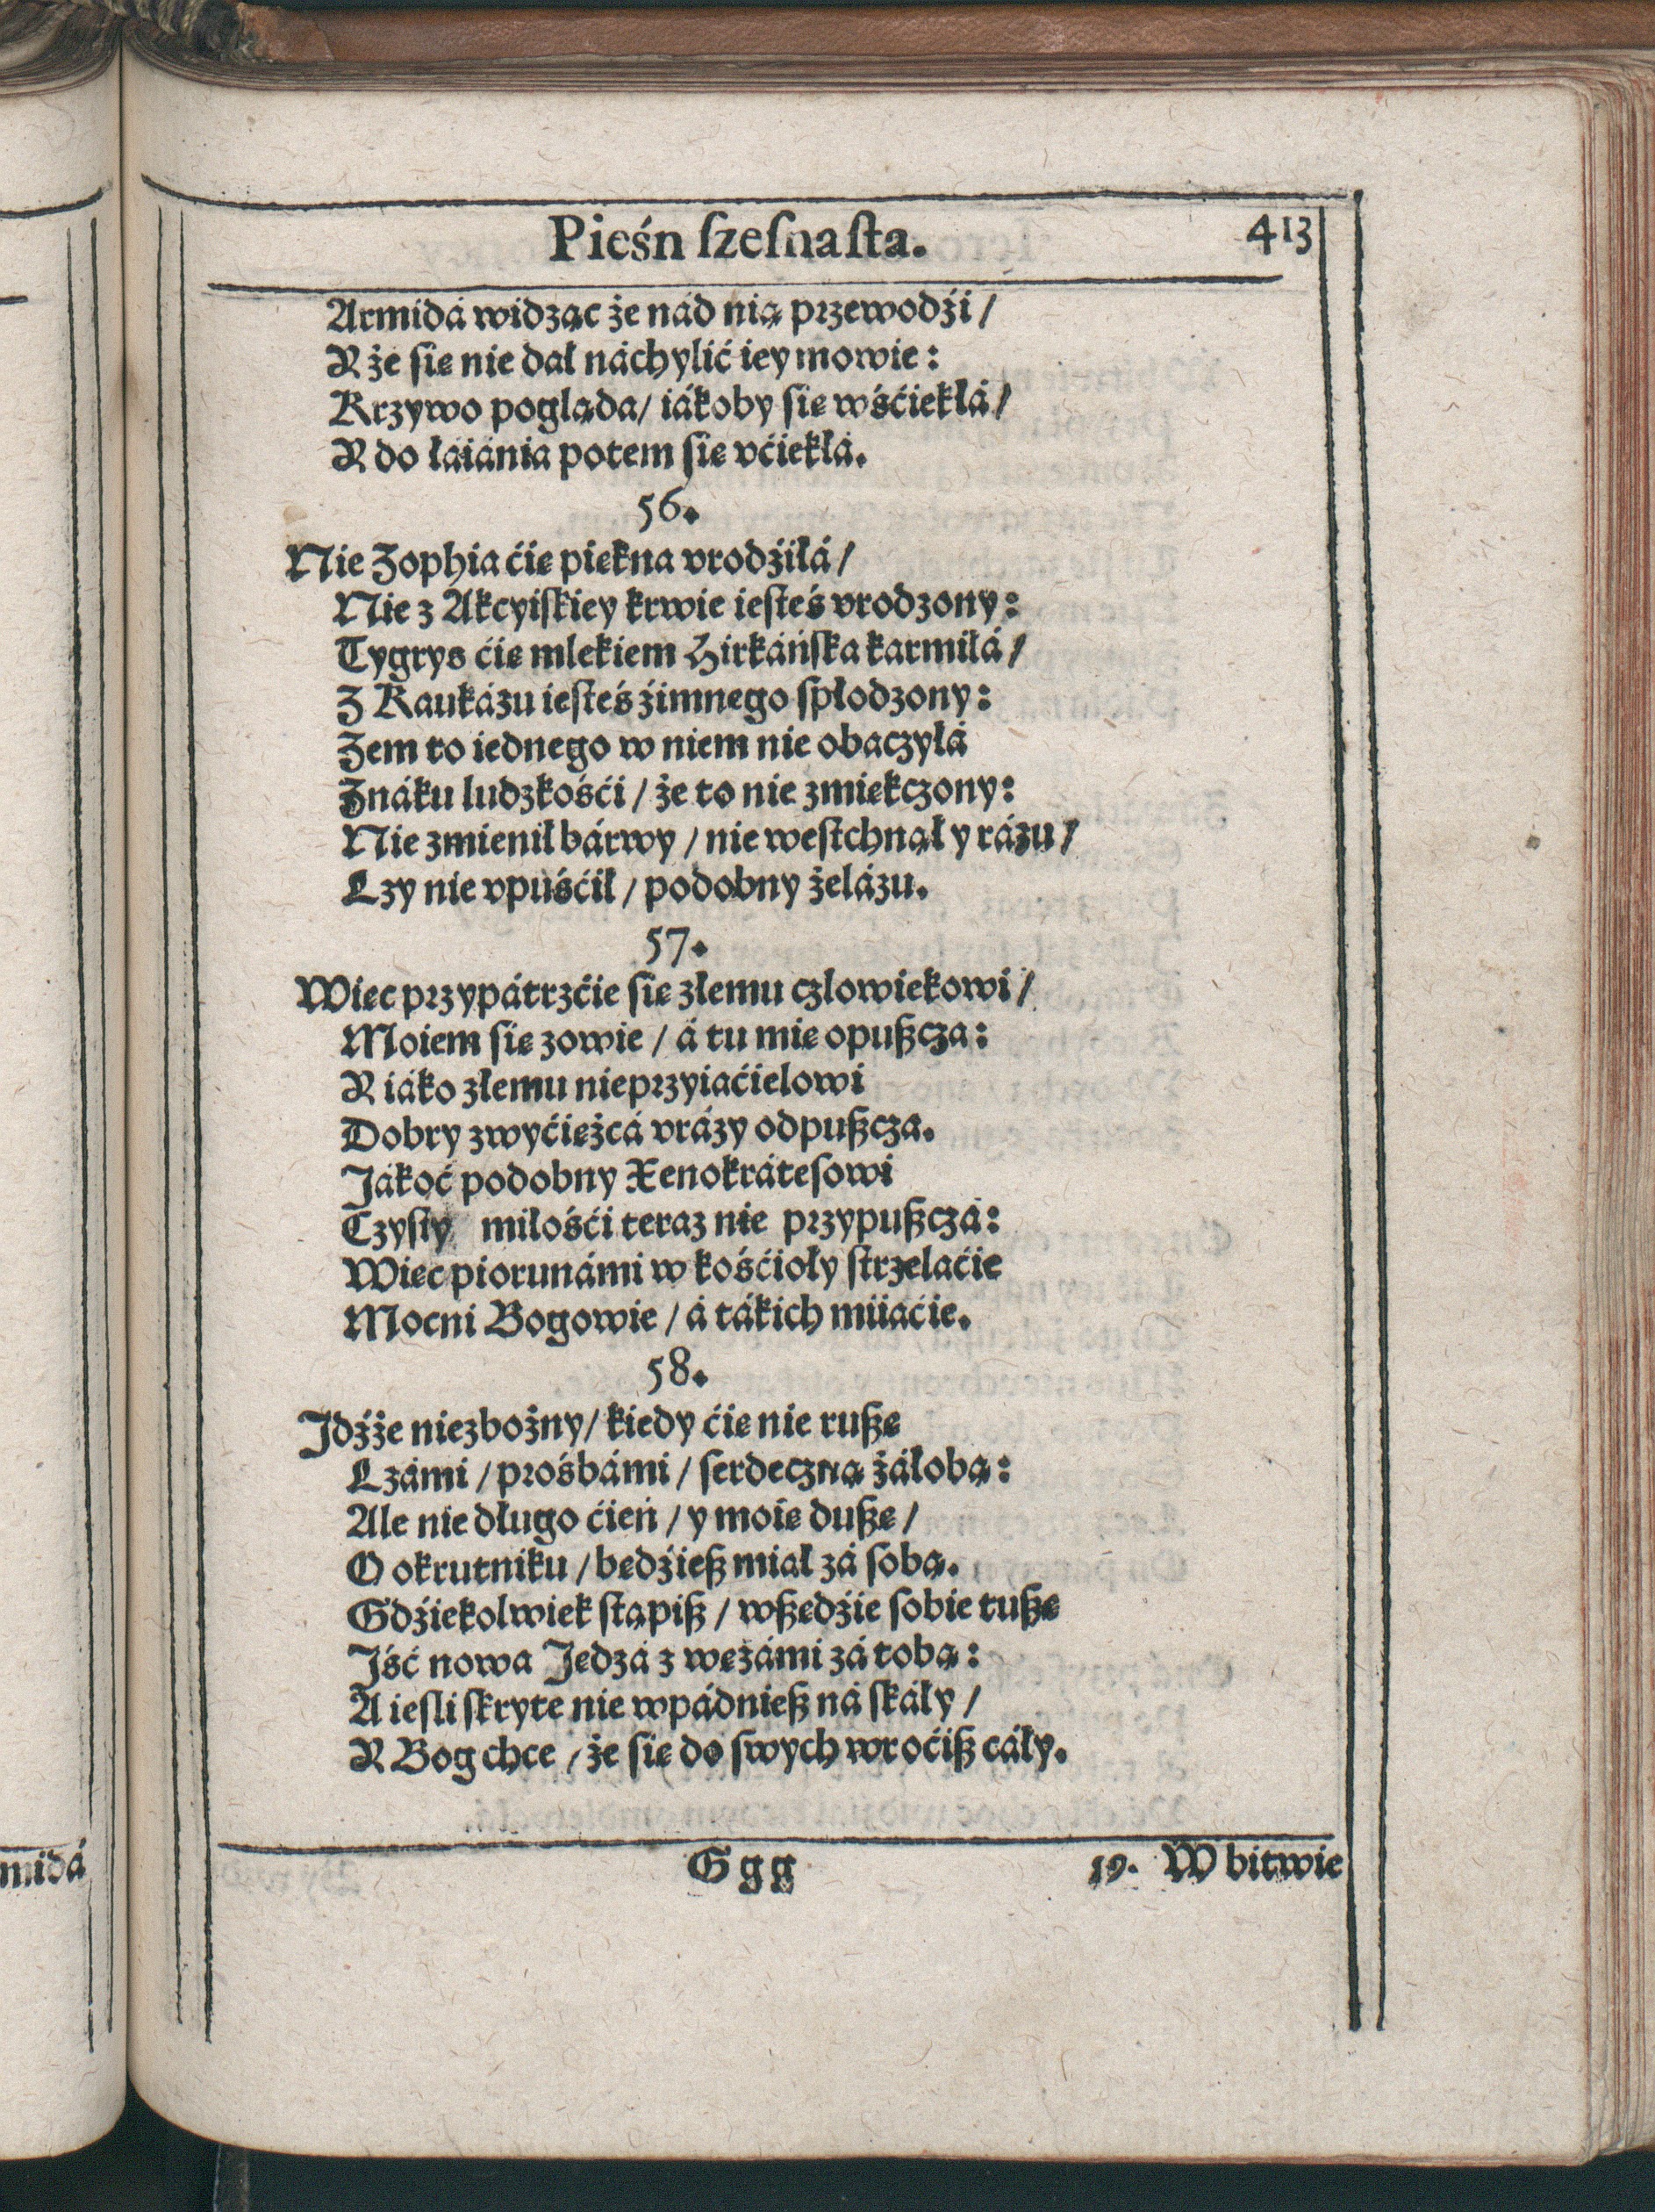 Pieśń ſzeſnaſta.
413
Armidá widząc że nád nią przewodźi /
Y że się nie dał náchylić iey mowie:
Krzywo pogląda / iákoby się wśćiekłá /
Y do łáiánia potem się vćiekłá.
56.
Nie Zophia ćię piękna vrodźiłá /
Nie z Akcyiſkiey krwie ieſteś vrodzony:
Tygrys ćię mlekiem Hirkáńſka karmiłá /
Z Kaukázu ieſteś źimnego ſpłodzony:
Zem to iednego w niem nie obaczyłá
Znáku ludzkośći / że to nie zmiękczony:
Nie zmienił bárwy / nie weſtchnął y rázu /
Lzy nie vpuśćił / podobny żelázu.
57.
Więc przypátrzćie się złemu człowiekowi /
Moiem się zowie / á tu mię opuſzcza:
Y iáko złemu nieprzyiaćielowi
Dobry zwyćiężcá vrázy odpuſzcza.
Jákoć podobny Xenokráteſowi
Czyſty miłośći teraz nie przypuſzczá:
Więc piorunámi w kośćioły ſtrzelaćie
Mocni Bogowie / á tákich miiaćie.
58.
Jdźże niezbożny / kiedy ćię nie ruſzę
Lzámi / prośbámi / ſerdeczną żáłobą:
Ale nie długo ćień / y moię duſzę /
O okrutniku / będźieſz miał zá ſobą.
Gdźiekolwiek ſtąpiſz / wſzędźie ſobie tuſzę
Jść nowa Jędzá z wężámi zá tobą:
A ieſli ſkryte nie wpádnieſz ná ſkáły /
Y Bog chce / że się do ſwych wroćiſz cáły.
Ggg
19. W bitwie
midá